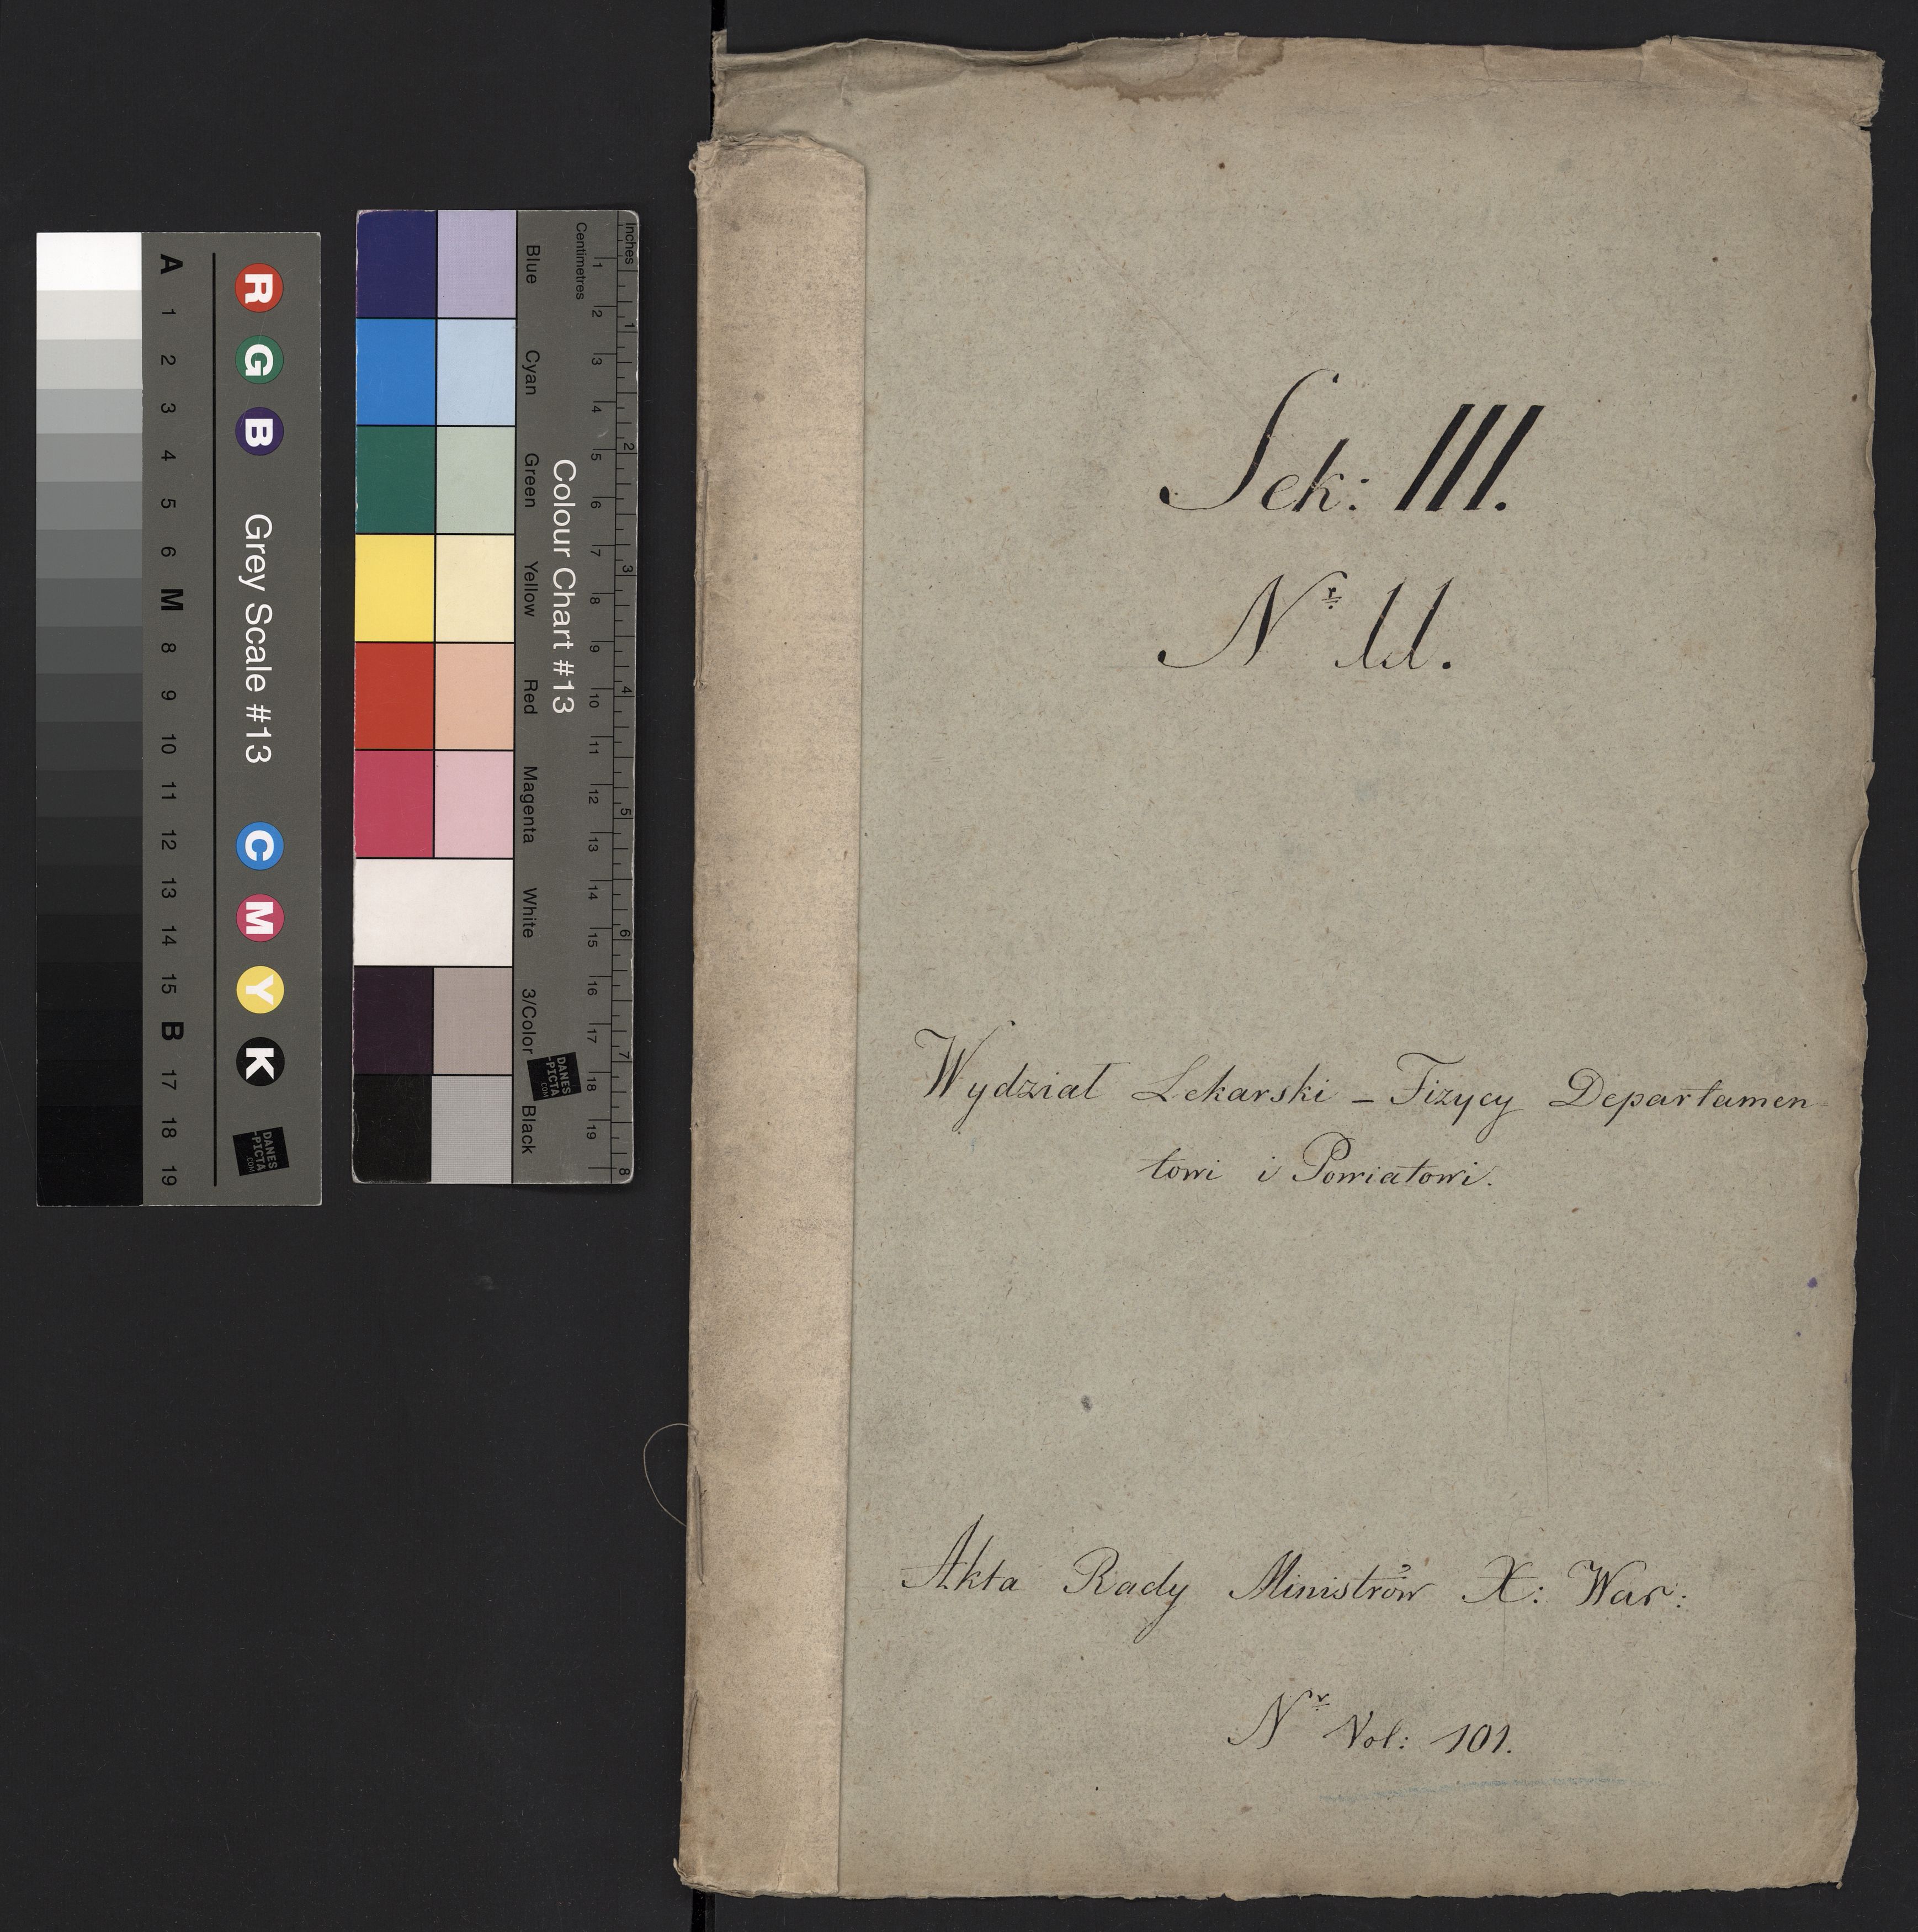 Sek: III.
Nr 11.
Wydział Lekarski – Fizycy Departamen-
towi i Powiatowi.
Akta Rady Ministrów X: War:
Nr Vol: 101.
A 1 2 3 4 5 6 M 8 9 10 11 12 13 14 15 B 17 18 19
R G B Grey Scale #13 C M Y K
DANES
-PICTA
.COM
Blue Cyan Green Yellow Red Magenta White 3/Color Black
Colour Chart #13
DANES
-PICTA
.COM
Centimetres 1 2 3 4 5 6 7 8 9 10 11 12 13 14 15 16 17 18 19
Inches 1 2 3 4 5 6 7 8